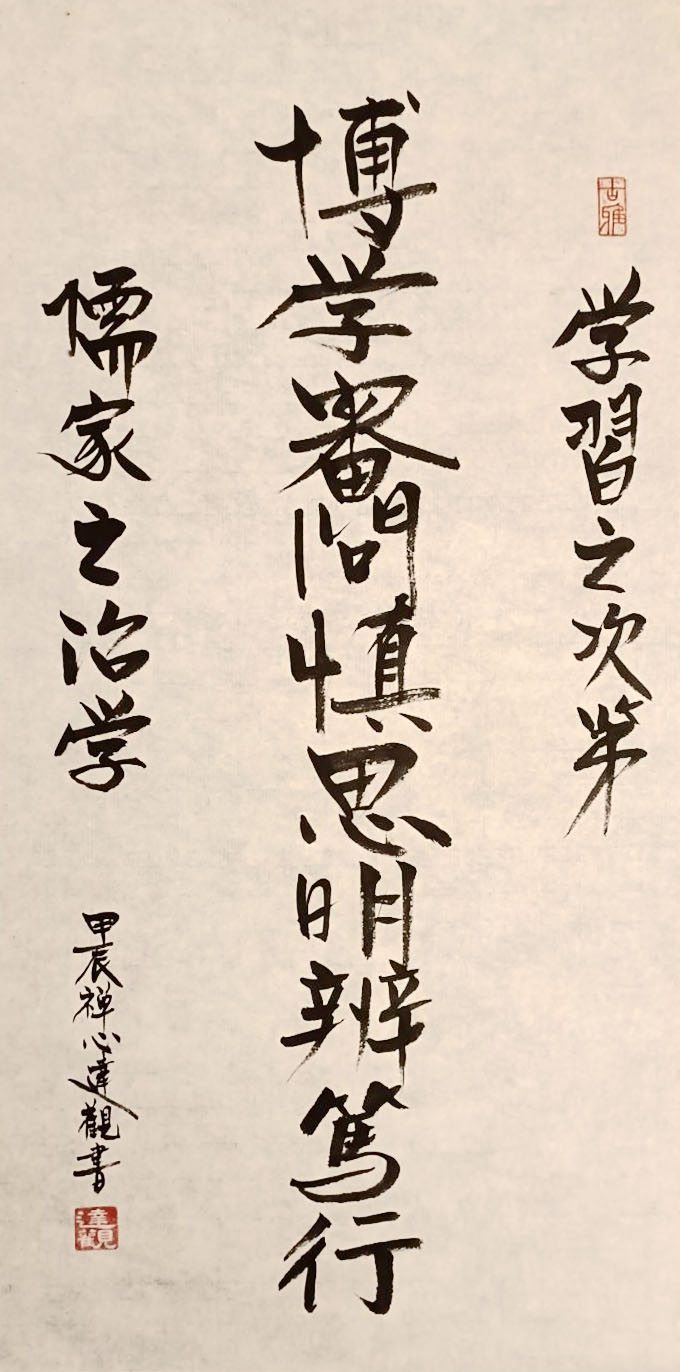 古雅
学習之次第
博学審問慎思明辨篤行
儒家之治学
甲辰禅心達觀書
達觀